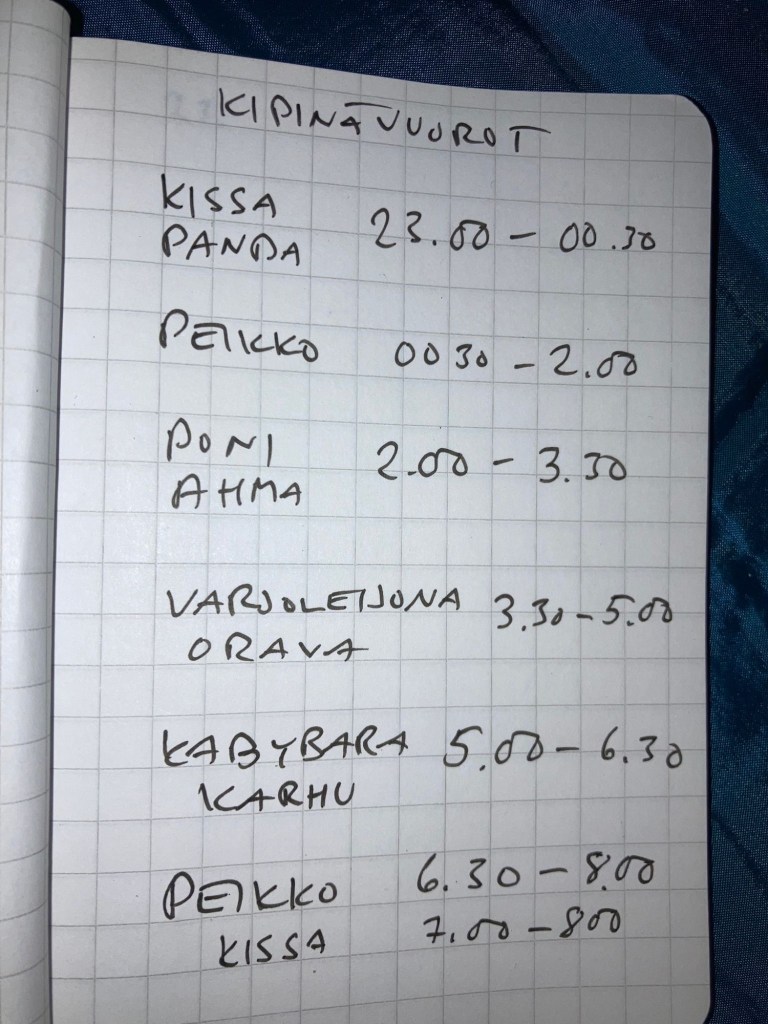 KIPINÄVUOROT
KISSA
PANDA 23.00 – 00.30
PEIKKO 0030 – 2.00
PONI
AHMA 2.00 – 3.30
VARJOLEIJONA 3.30 – 5.00
ORAVA
KABYBARA 5.00 – 6.30
KARHU
PEIKKO 6.30 – 8.00
KISSA 7.00 – 800